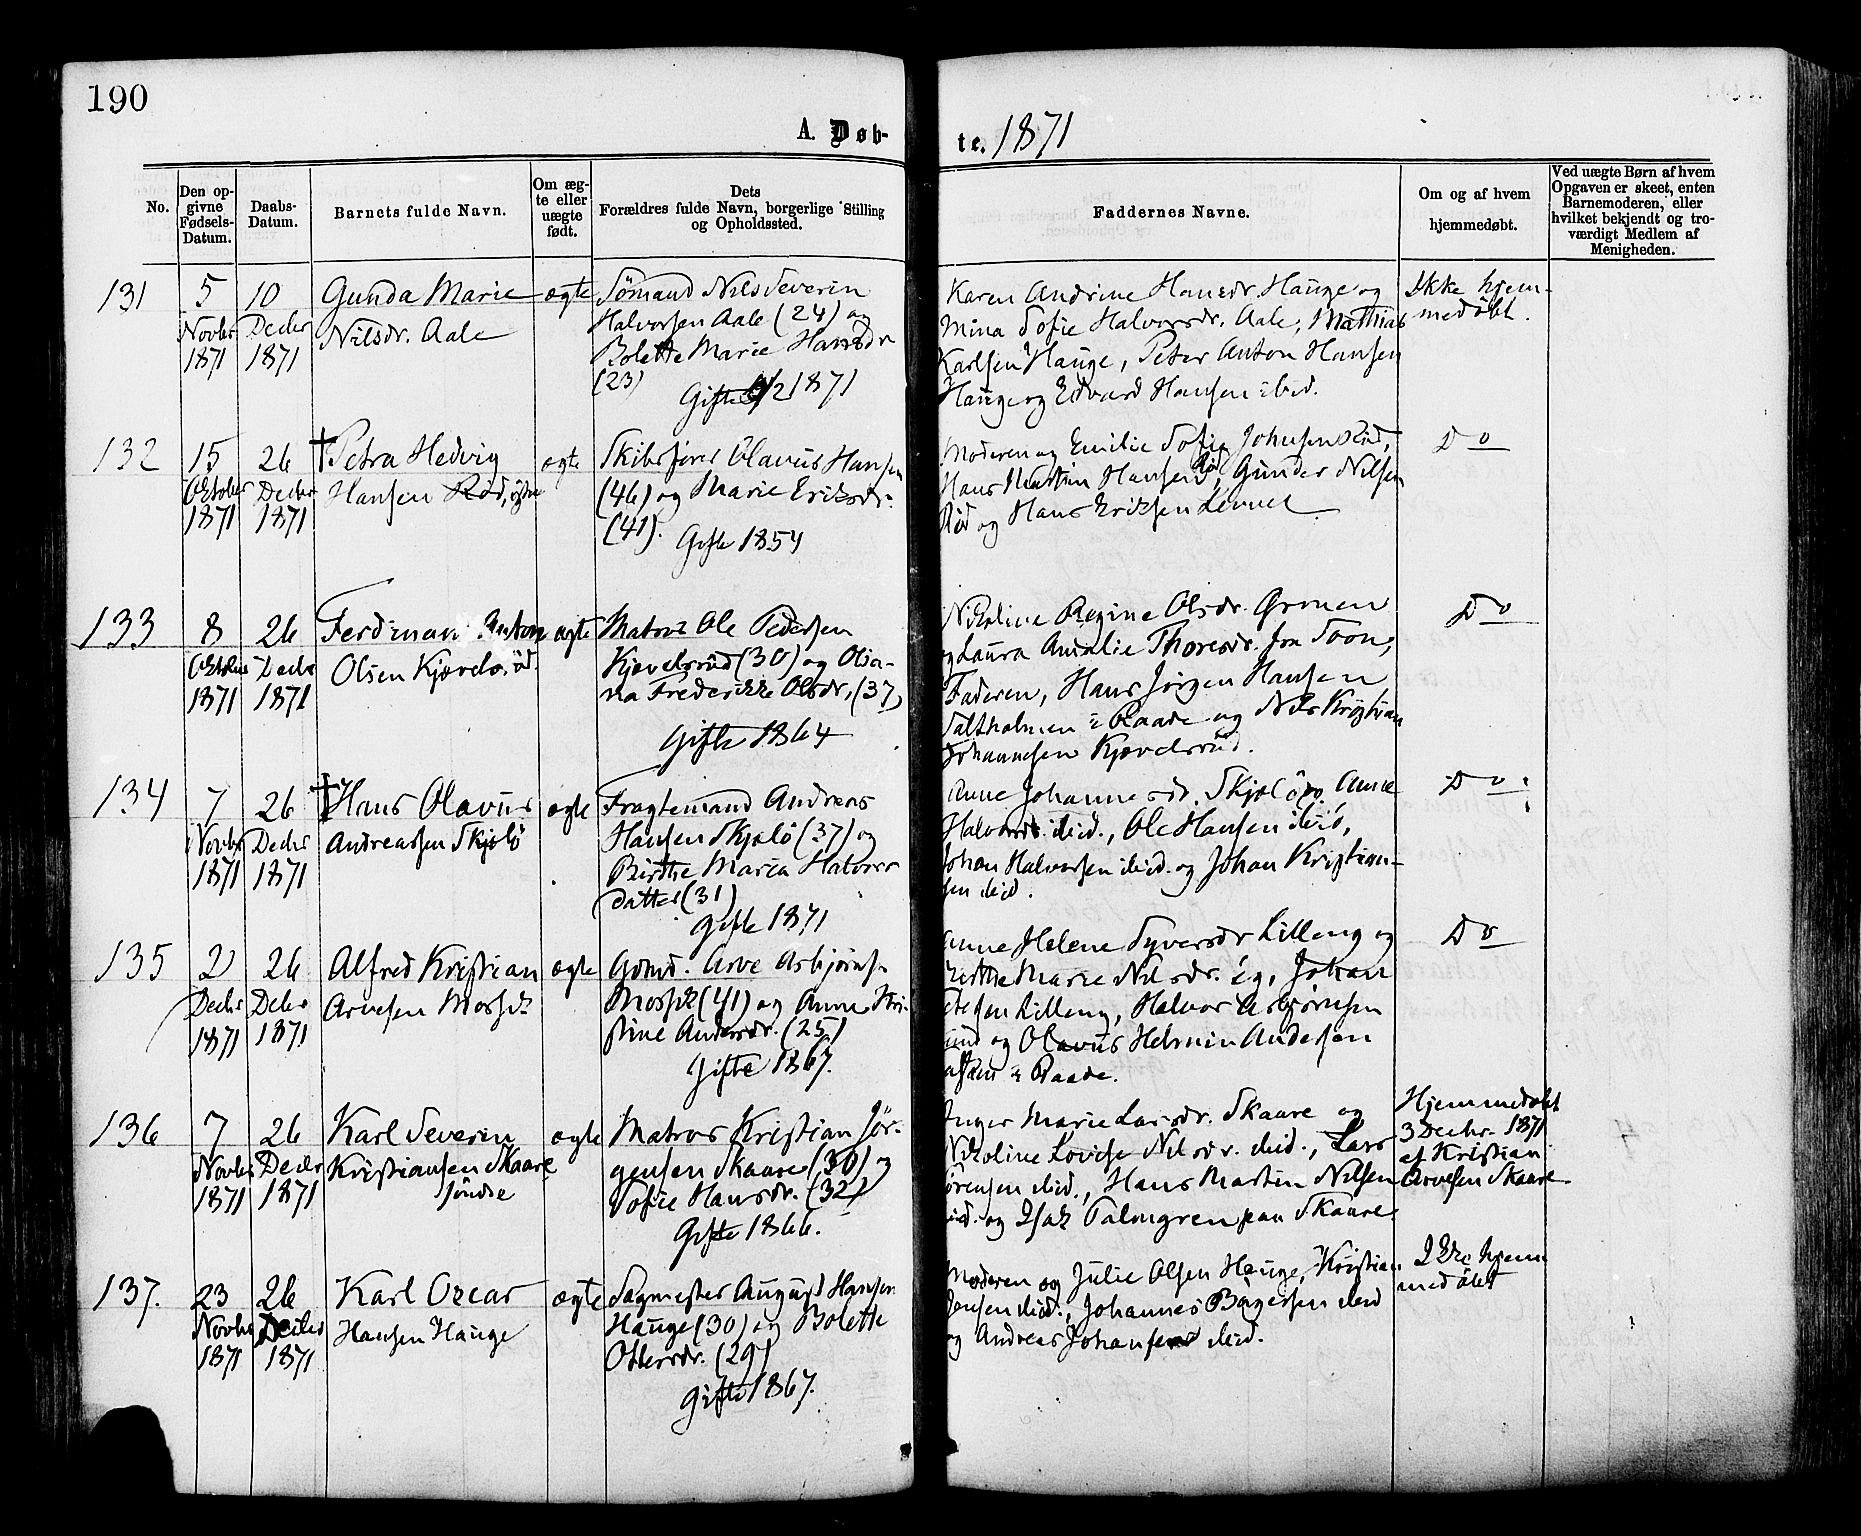 190
A. Døb-
te. 1871
No.
Den op-
givne
Fødsels-
Datum.
Daabs-
Datum.
Barnets fulde Navn.
Om æg-
te eller
uægte
født.
Dets
Forældres fulde Navn, borgerlige Stilling
og Opholdssted.
Faddernes Navne.
Om og af hvem
hjemmedøbt.
Ved uægte Børn af hvem
Opgaven er skeet, enten
Barnemoderen, eller
hvilket bekjendt og tro-
værdigt Medlem af
Menigheden.
131
5
Novbr
1871
10
Decbr
1871
Gunda Marie
Nilsdr. Aale
ægte
Sømand Nils Severin
Halvorsen Aale (24) og
Bolette Marie Hansdr
(23)
Gifte 1871
Karen Andrine Hansdr. Hauge og
Mina Sofie Halvorsdr. Aale, Mathias
Karlsen Hauge, Peter Anton Hansen
Hauge og Edvard Hansen ibid.
Ikke hjem-
medøbt.
132
15
Oktober
1871
26
Decbr
1871
† Petra Hedvig
Hansen Rød,
ægte
Skibsfører Olavus Hansen
(46) og Marie Eriksdr.
(41).
Gifte 1854
Moderen og Emilie Sofie Johnsen Rød,
Hans Martin Hansen Rød, Gunder Nilsen
Rød og Hans Eriksen
Do
133
8
Oktober
1871
26
Decbr
1871
Ferdinan Anton
Olsen Kjævelsrüd.
ægte
Matros Ole Pedersen
Kjævelsrüd (30) og Olia-
na Frederikke Olsdr. (37)
Gifte 1864
Nikoline Regine Olsdr. Grønen
og Laura Amalie Thoresdr. fra Soon,
Faderen, Hans Jørgen Hansen
Saltholmen i Raade og Nils Kristian
Johannesen Kjævelsrüd.
Do
134
7
Novbr
1871
26
Decbr
1871
† Hans Olavus
Andreassen Skjølö
ægte
Fragtemand Andreas
Hansen Skjølö (37) og
Birthe Maria Halvors
datter (31)
Gifte 1871
Anne Johannesdr. Skjølö, Anne
Halvorsdr. ibid., Ole Hansen ibid,
Johan Halvorsen ibid. og Johan Kristian-
sen ibid.
Do
135
2
Decbr
1871
26
Decbr
1871
Alfred Kristian
Arvesen Mossik
ægte
Gdmd. Arve Asbjørns.
Mossik (41) og Anne Kri-
stine Andersdr. (25)
Gifte 1867.
Anne Helene Syversdr Lilleng og
Berthe Marie Nilsdr. ig, Johan
Lilleng, Halvor Asbjørnsen
og Olavus Helmin Andersen
i Raade.
Do
136
7
Novbr
1871
26
Decbr
1871
Karl Severin
Kristiansen Skaare
söndre
ægte
Matros Kristian Jør-
gensen Skaare (30) og
Sofie Hansdr. (32)
Gifte 1866.
Inger Marie Larsdr. Skaare og
Nikoline Lovise Nilsdr. ibid., Lars
Sörensen ibid., Hans Martin Nilsen
ibid. og Isak Palmgren paa Skaare.
Hjemmedøbt
3 Decbr. 1871
af Kristian
Arvesen Skaare
137.
23
Novbr
1871
26
Decbr
1871
Karl Oscar
Hansen Hauge
ægte
Sagmester August Hansen
Hauge (30) og Bolette
Ottersdr. (29)
Gifte 1867.
Moderen og Julie Olsen Hauge, Kristian
Jensen ibid., Johannes Bøgersen ibid
og Andreas Johansen ibid.
Ikke hjem
medøbt